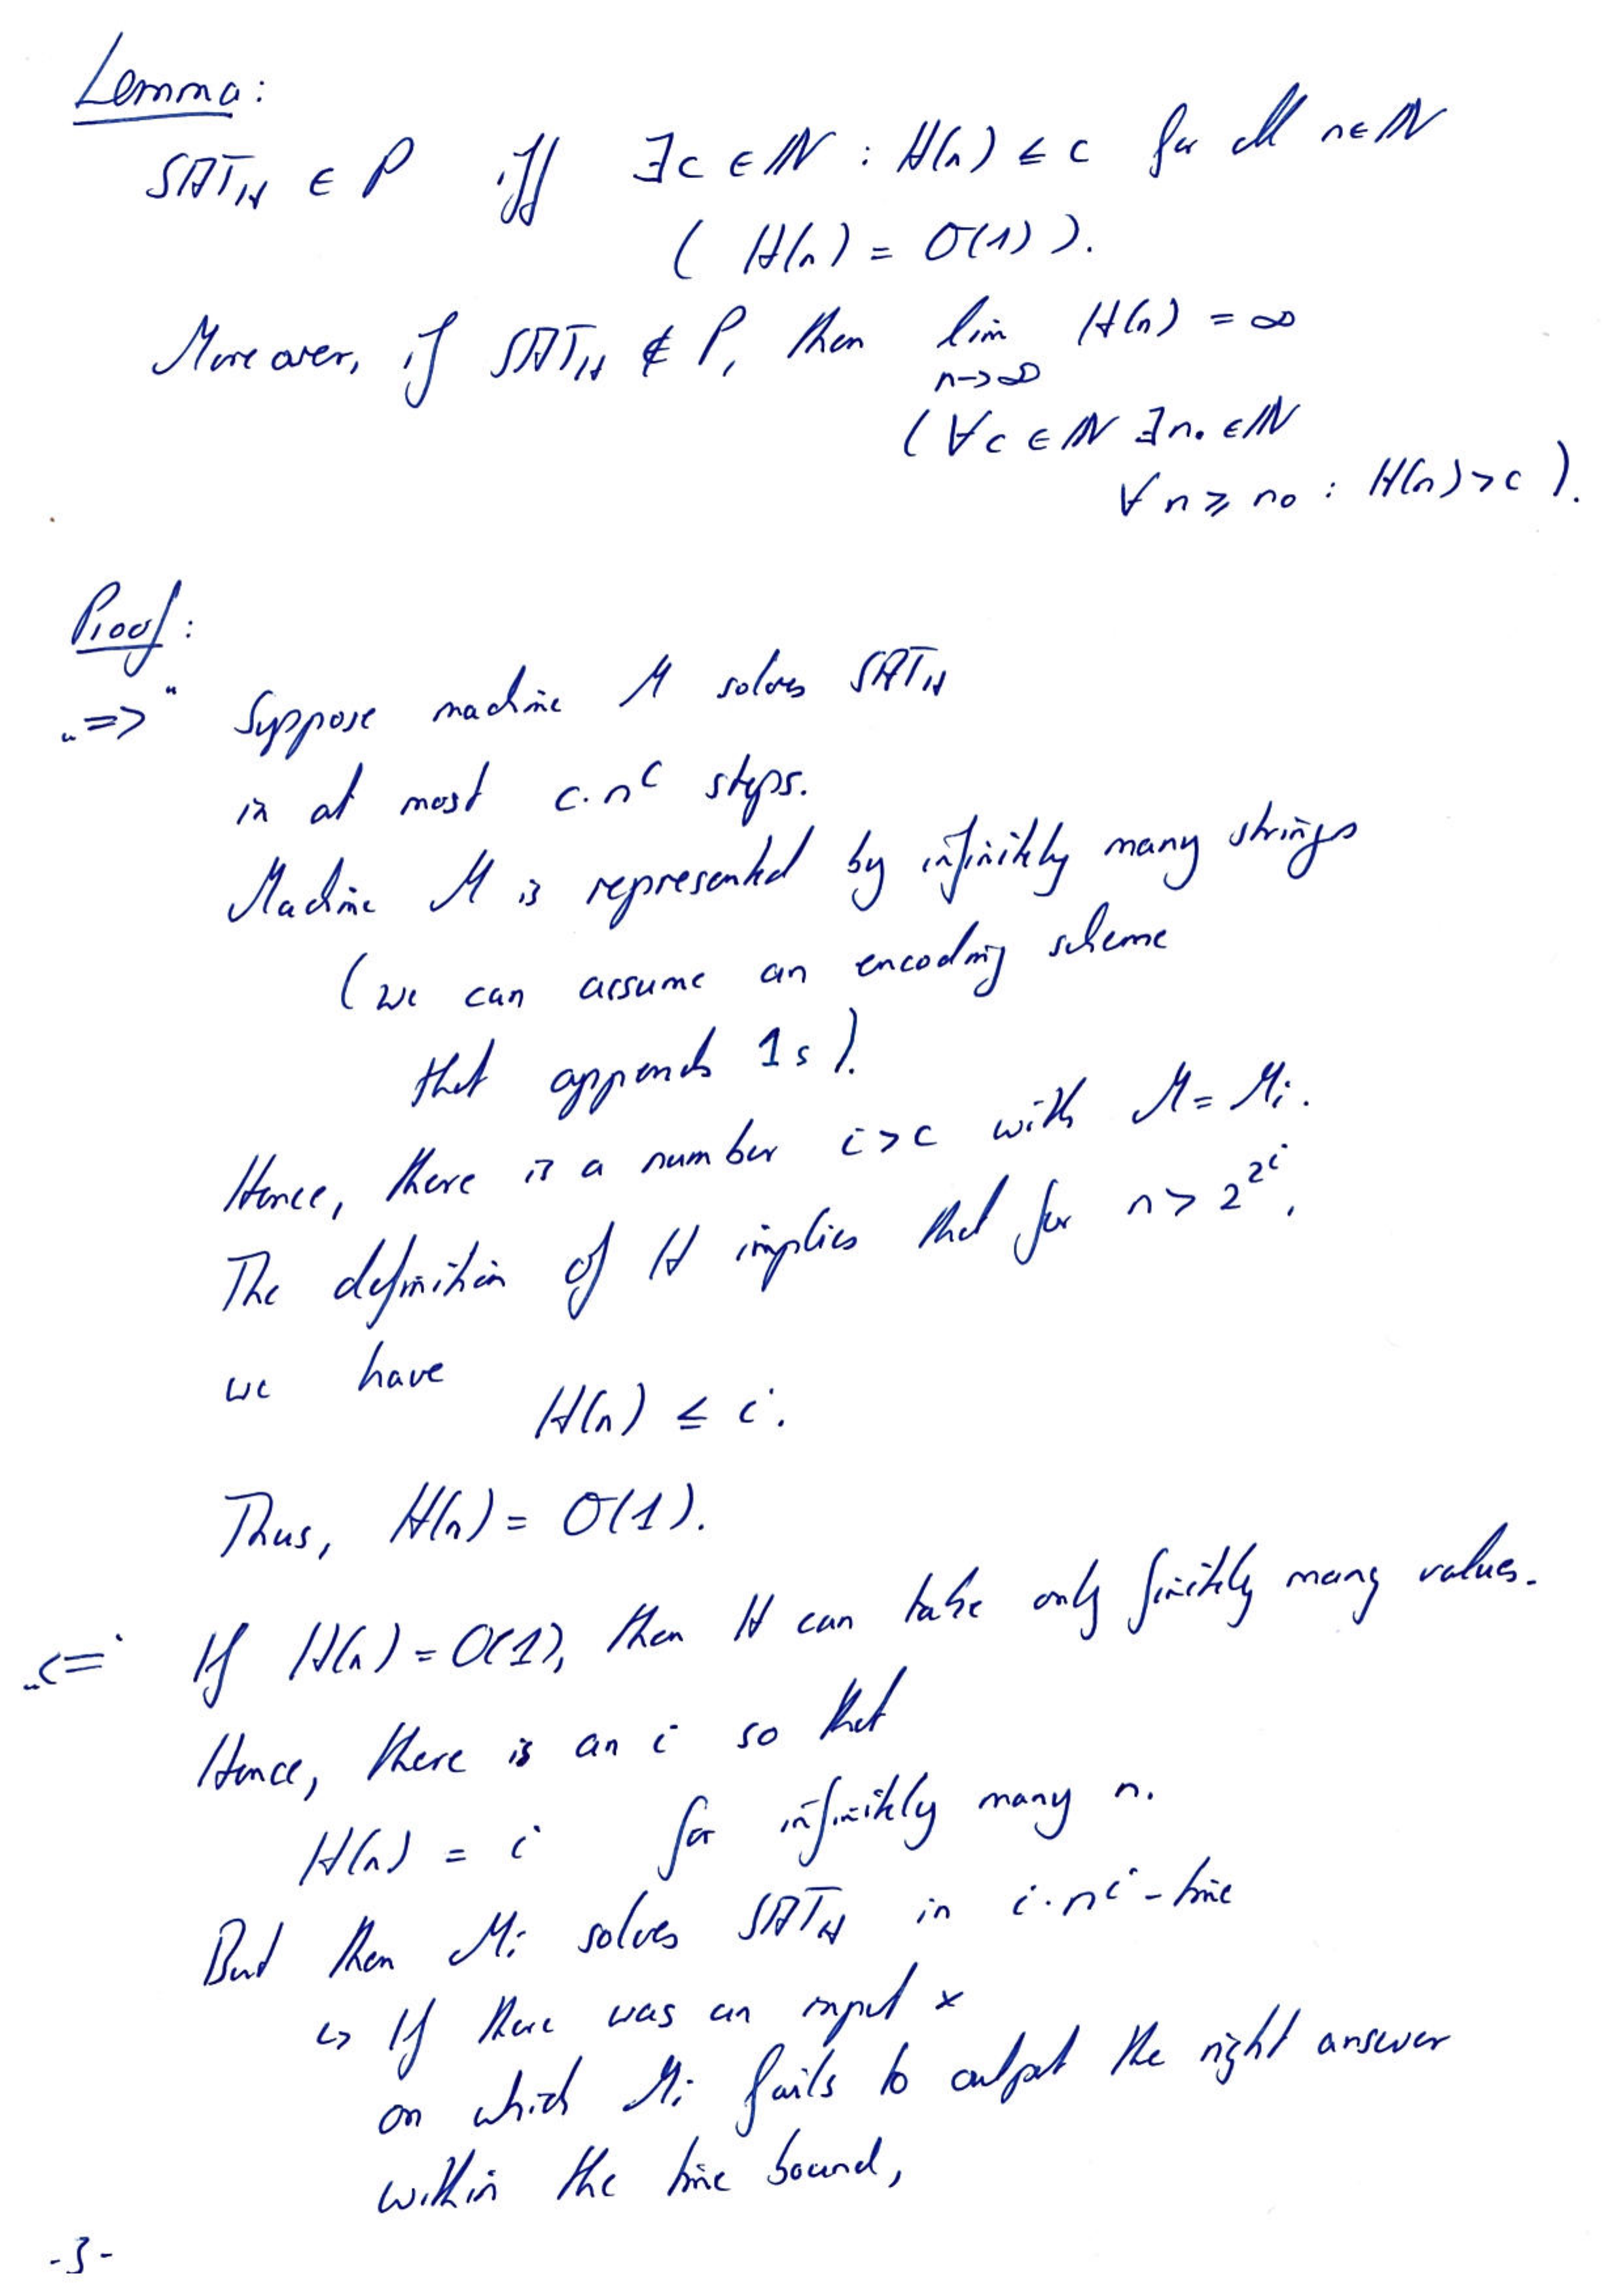 Lemma:
SAT_H ∈ P iff ∃c ∈ ℕ : H(n) ≤ c for all n∈ℕ
( H(n) = O(1) ).
Moreover, if SAT_H ∉ P, then lim_{n->∞} H(n) = ∞
( ∀c ∈ ℕ ∃n₀ ∈ ℕ
∀ n ≥ n₀ : H(n) > c ).
Proof:
„=>“ Suppose machine M solves SAT_H
in at most c·n^c steps.
Machine M is represented by infinitely many strings
(we can assume an encoding scheme
that appends 1s).
Hence, there is a number i > c with M = M_i.
The definition of H implies that for n > 2^{2^i},
we have
H(n) ≤ i.
Thus, H(n) = O(1).
„<=“ If H(n) = O(1), then H can take only finitely many values.
Hence, there is an i so that
H(n) = i for infinitely many n.
But then M_i solves SAT_H in i·n^i-time
↳ If there was an input x
on which M_i fails to output the right answer
within the time bound,
-3-